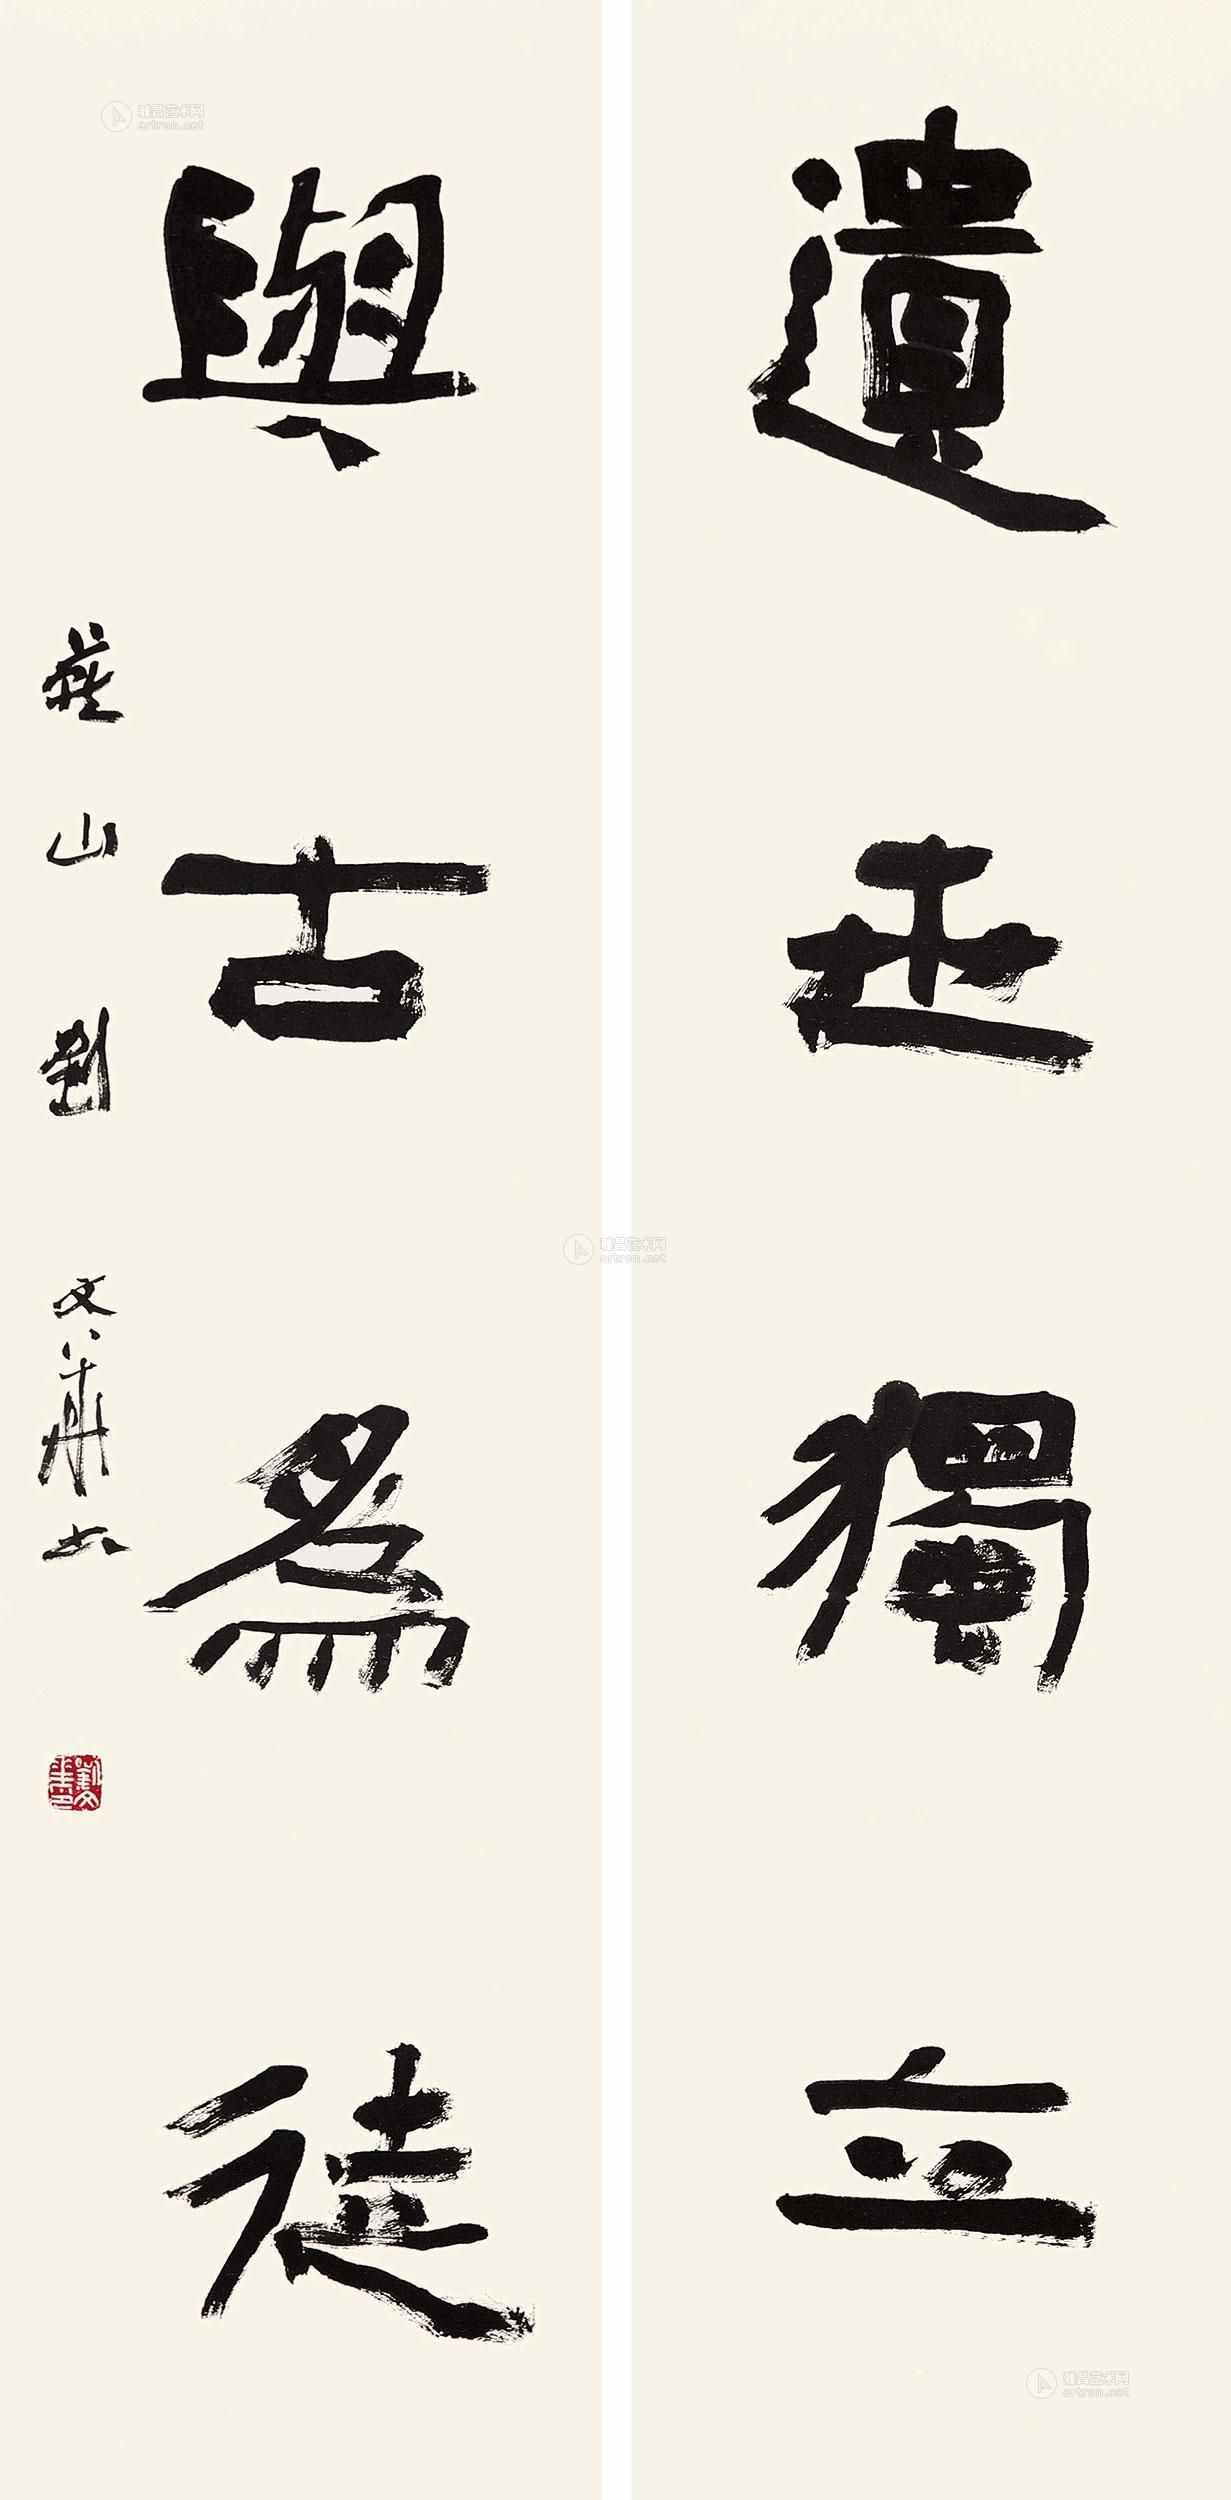 遺世獨立
與古為徒
燕山劉文華书
劉文華印
雅昌艺术网
artron.net
雅昌艺术网
artron.net
雅昌艺术网
artron.net